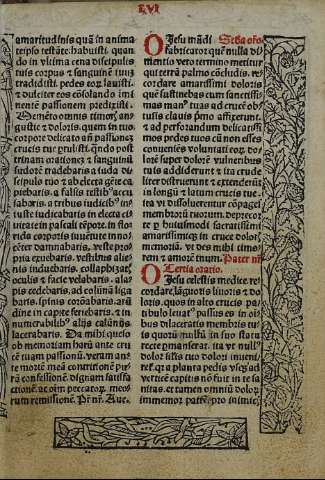 LVI
amaritudinis quã in anima
teipso testãte habuisti. quan
do in vltima cena discipulis
tuis corpus & sanguinē tuum
tradidisti. pedes eoꝝ lauisti.
& dulciter eos cõsolando imi
nentē passionem predixisti.
Memēto omnis timoris an
gustie & doloris. quem in tuo
corpore delicato añ passionē
crucis tue ptulisti. qñdo post
trinam orationez & sanguineũ
sudorē tradebaris. a iuda di
scipulo tuo & abelecta gēte ca
piebaris. a falsis testibꝰ accu
sabaris. a tribus iudicibꝰ in
iuste iudicabaris in electa ci
uitate in pascali tēpore. in flo
rida corporis iuuētute inno
cēter damnabaris. veste pro
pria exuebaris. vestibus alie
nis induebaris. collaphizatꝰ.
oculis & facie velabaris. ala
pis cedebaris. ad colũnã liga
baris. spinis coronabaris. arũ
dine in capite feriebaris. & in
numerabilibꝰ alijs calũnijs
lacerabaris. Da mihi queso
ob memoriam horũ ante cru
cē tuam passionũ. veram an
te mortē meã contritionē pu
rã confessionē dignam satisfa
ctionē. ac oĩm pctatorꝝ meo
rum remissionē. Pr̃ nr̃. Aue.
O Jesu mũdi Scḋa orõ.
fabricator quē nulla di
mentio vero termino metitur
qui terrã palmo cõcludis. re
cordare amarissimi doloris
quē sustinebas cum sanctissi
mas manꝰ tuas ad crucē obtu
sis clauis prĩo affigerent.
& ad perforandum delicatissi
mos pedes tuos cũ non esses
conueniēs voluntati eoꝝ. do
lorē super dolorē vulneribus
tuis addiderunt & ita crude
liter distraxerunt & extenderũt
in longũ & latum crucis tue.
ita vt dissoluerentur cõpages
membrorũ tuorum. deprecor
te p̱ huiusmodi sacratissimi
amarissimiqꝫ in cruce doloris
memoriã. vt des mihi timo
rem & amorē tuum. Pater nr̃
Tertia oratio.
O Jesu celestis medice. re
cordare lãguoris liuoris & do
loris. quos in alto crucis pa
tibulo leuatꝰ passus es in oĩ
bus dilaceratis membris tuis
quorũ nullũ in suo statu
recte permanserat. ita vt nullꝰ
dolor silis tuo dolori inueni
ret. qꝛ a planta pedis vsqꝫ ad
verticē capitis nõ fuit in te sa
nitas. et tamen omniũ dolorũ
immemor. patrē pro inimicis